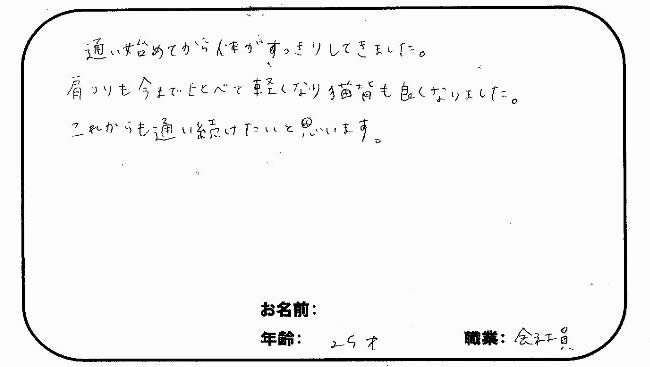 通い始めてから体がすっきりしてきました。
肩こりも今までとくらべて軽くなり猫背も良くなりました。
これからも通い続けたいと思います。
お名前:
年齢: 25才
職業: 会社員